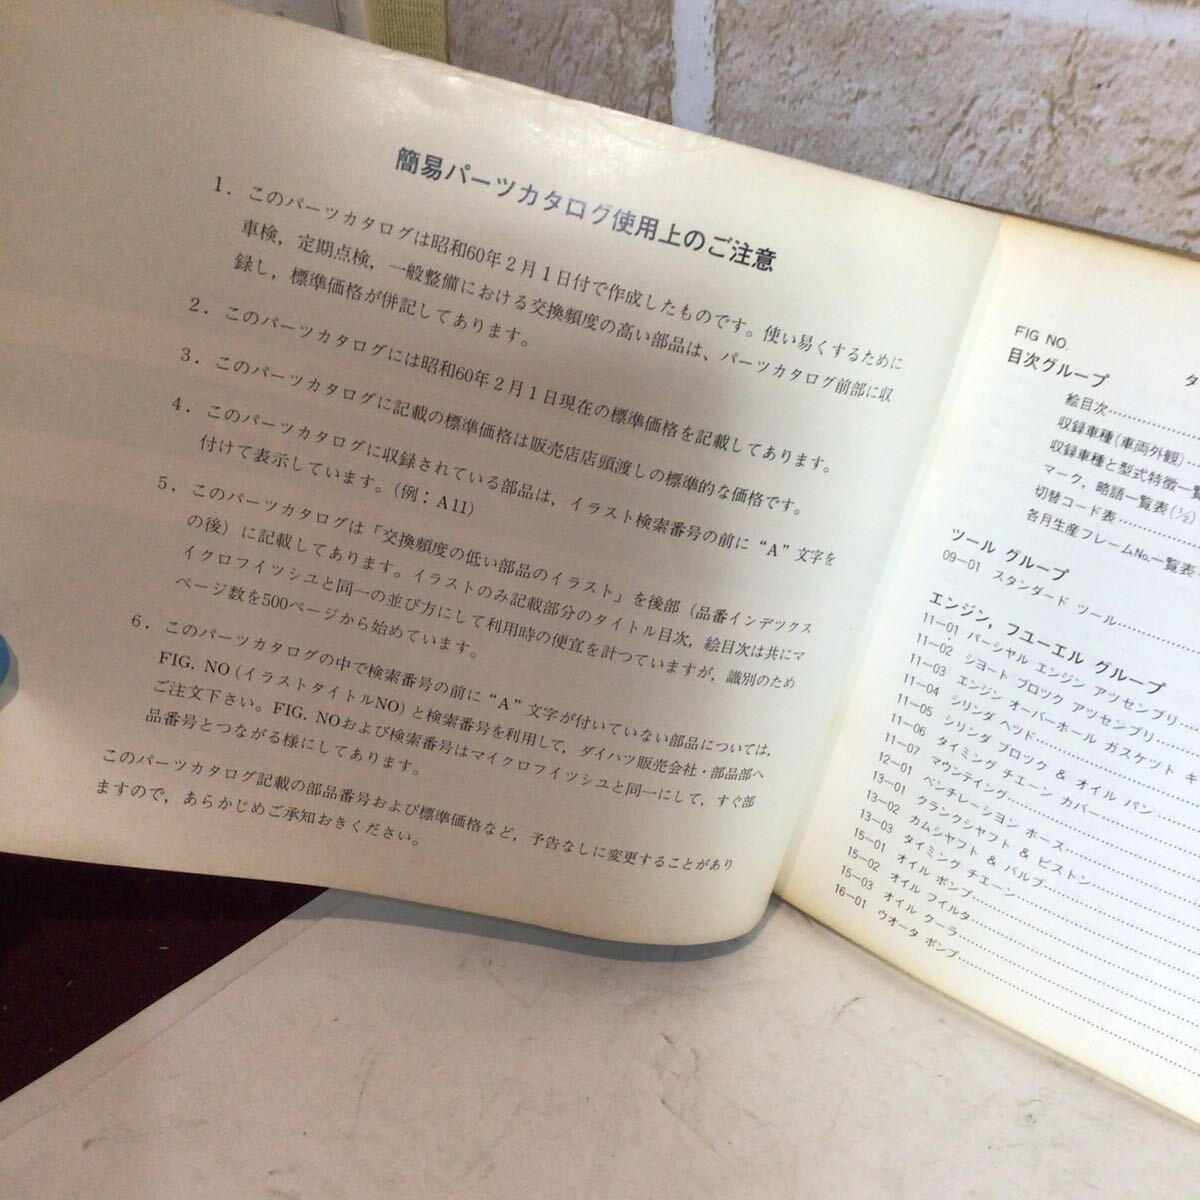 簡易パーツカタログ使用上のご注意
1．このパーツカタログは昭和60年2月1日付で作成したものです。使い易くするために
車検，定期点検，一般整備における交換頻度の高い部品は、パーツカタログ前部に収
録し，標準価格が併記してあります。
2．このパーツカタログには昭和60年2月1日現在の標準価格を記載してあります。
3．このパーツカタログに記載の標準価格は販売店店頭渡しの標準的な価格です。
4．このパーツカタログに収録されている部品は，イラスト検索番号の前に“A”文字を
付けて表示しています。(例：A11)
5．このパーツカタログは「交換頻度の低い部品のイラスト」を後部（品番インデックス
の後）に記載してあります。イラストのみ記載部分のタイトル目次，絵目次は共にマ
イクロフイツシユと同一の並び方にして利用時の便宜を計つていますが，識別のため
ページ数を500ページから始めています。
6．このパーツカタログの中で検索番号の前に“A”文字が付いていない部品については，
FIG. NO (イラストタイトルNO) と検索番号を利用して，ダイハツ販売会社・部品部へ
ご注文下さい。FIG. NOおよび検索番号はマイクロフイツシユと同一にして，すぐ部
品番号とつながる様にしてあります。
このパーツカタログ記載の部品番号および標準価格など，予告なしに変更することがあり
ますので，あらかじめご承知おきください。
FIG NO.
目次グループ
絵目次
収録車種(車両外観)
収録車種と型式特徴一覧
マーク，略語一覧表(½)
切替コード表
各月生産フレームNo.一覧表
ツール グループ
09－01 スタンダード ツール
エンジン，フユーエル グループ
11－01 パーシャル エンジン アツセンブリ
11－02 シヨート ブロツク アツセンブリ
11－03 エンジン オーバーホール ガスケツト キ
11－04 シリンダ ヘッド
11－05 シリンダ ブロツク & オイル パン
11－06 タイミング チエーン カバー
11－07 マウンティング
12－01 ベンチレーシヨン ホース
13－01 クランクシヤフト & ピストン
13－02 カムシヤフト & バルブ
13－03 タイミング チエーン
15－01 オイル ポンプ
15－02 オイル フイルタ
15－03 オイル クーラ
16－01 ウオータ ポンプ